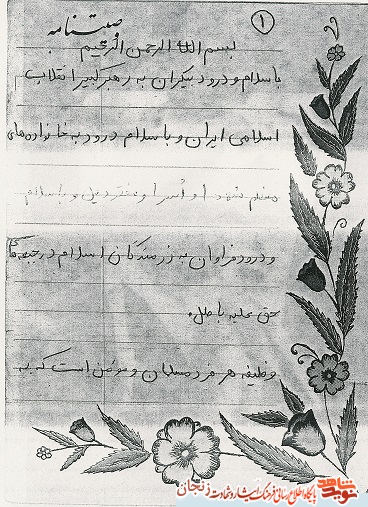 ①
وصیتنامه
بسم الله الرحمن الرحیم
با سلام و درود بیکران به رهبر کبیر انقلاب
اسلامی ایران و با سلام درود به خانواده‌های
معظم شهدا و اُسرا و مفقودین و با سلام
و درود فراوان به رزمندگان اسلام در جبهه‌های
حق علیه باطل.
وظیفه هر فرد مسلمان و مومن است که به
نوید شاهد
پایگاه اطلاع رسانی فرهنگ ایثار و شهادت زنجان